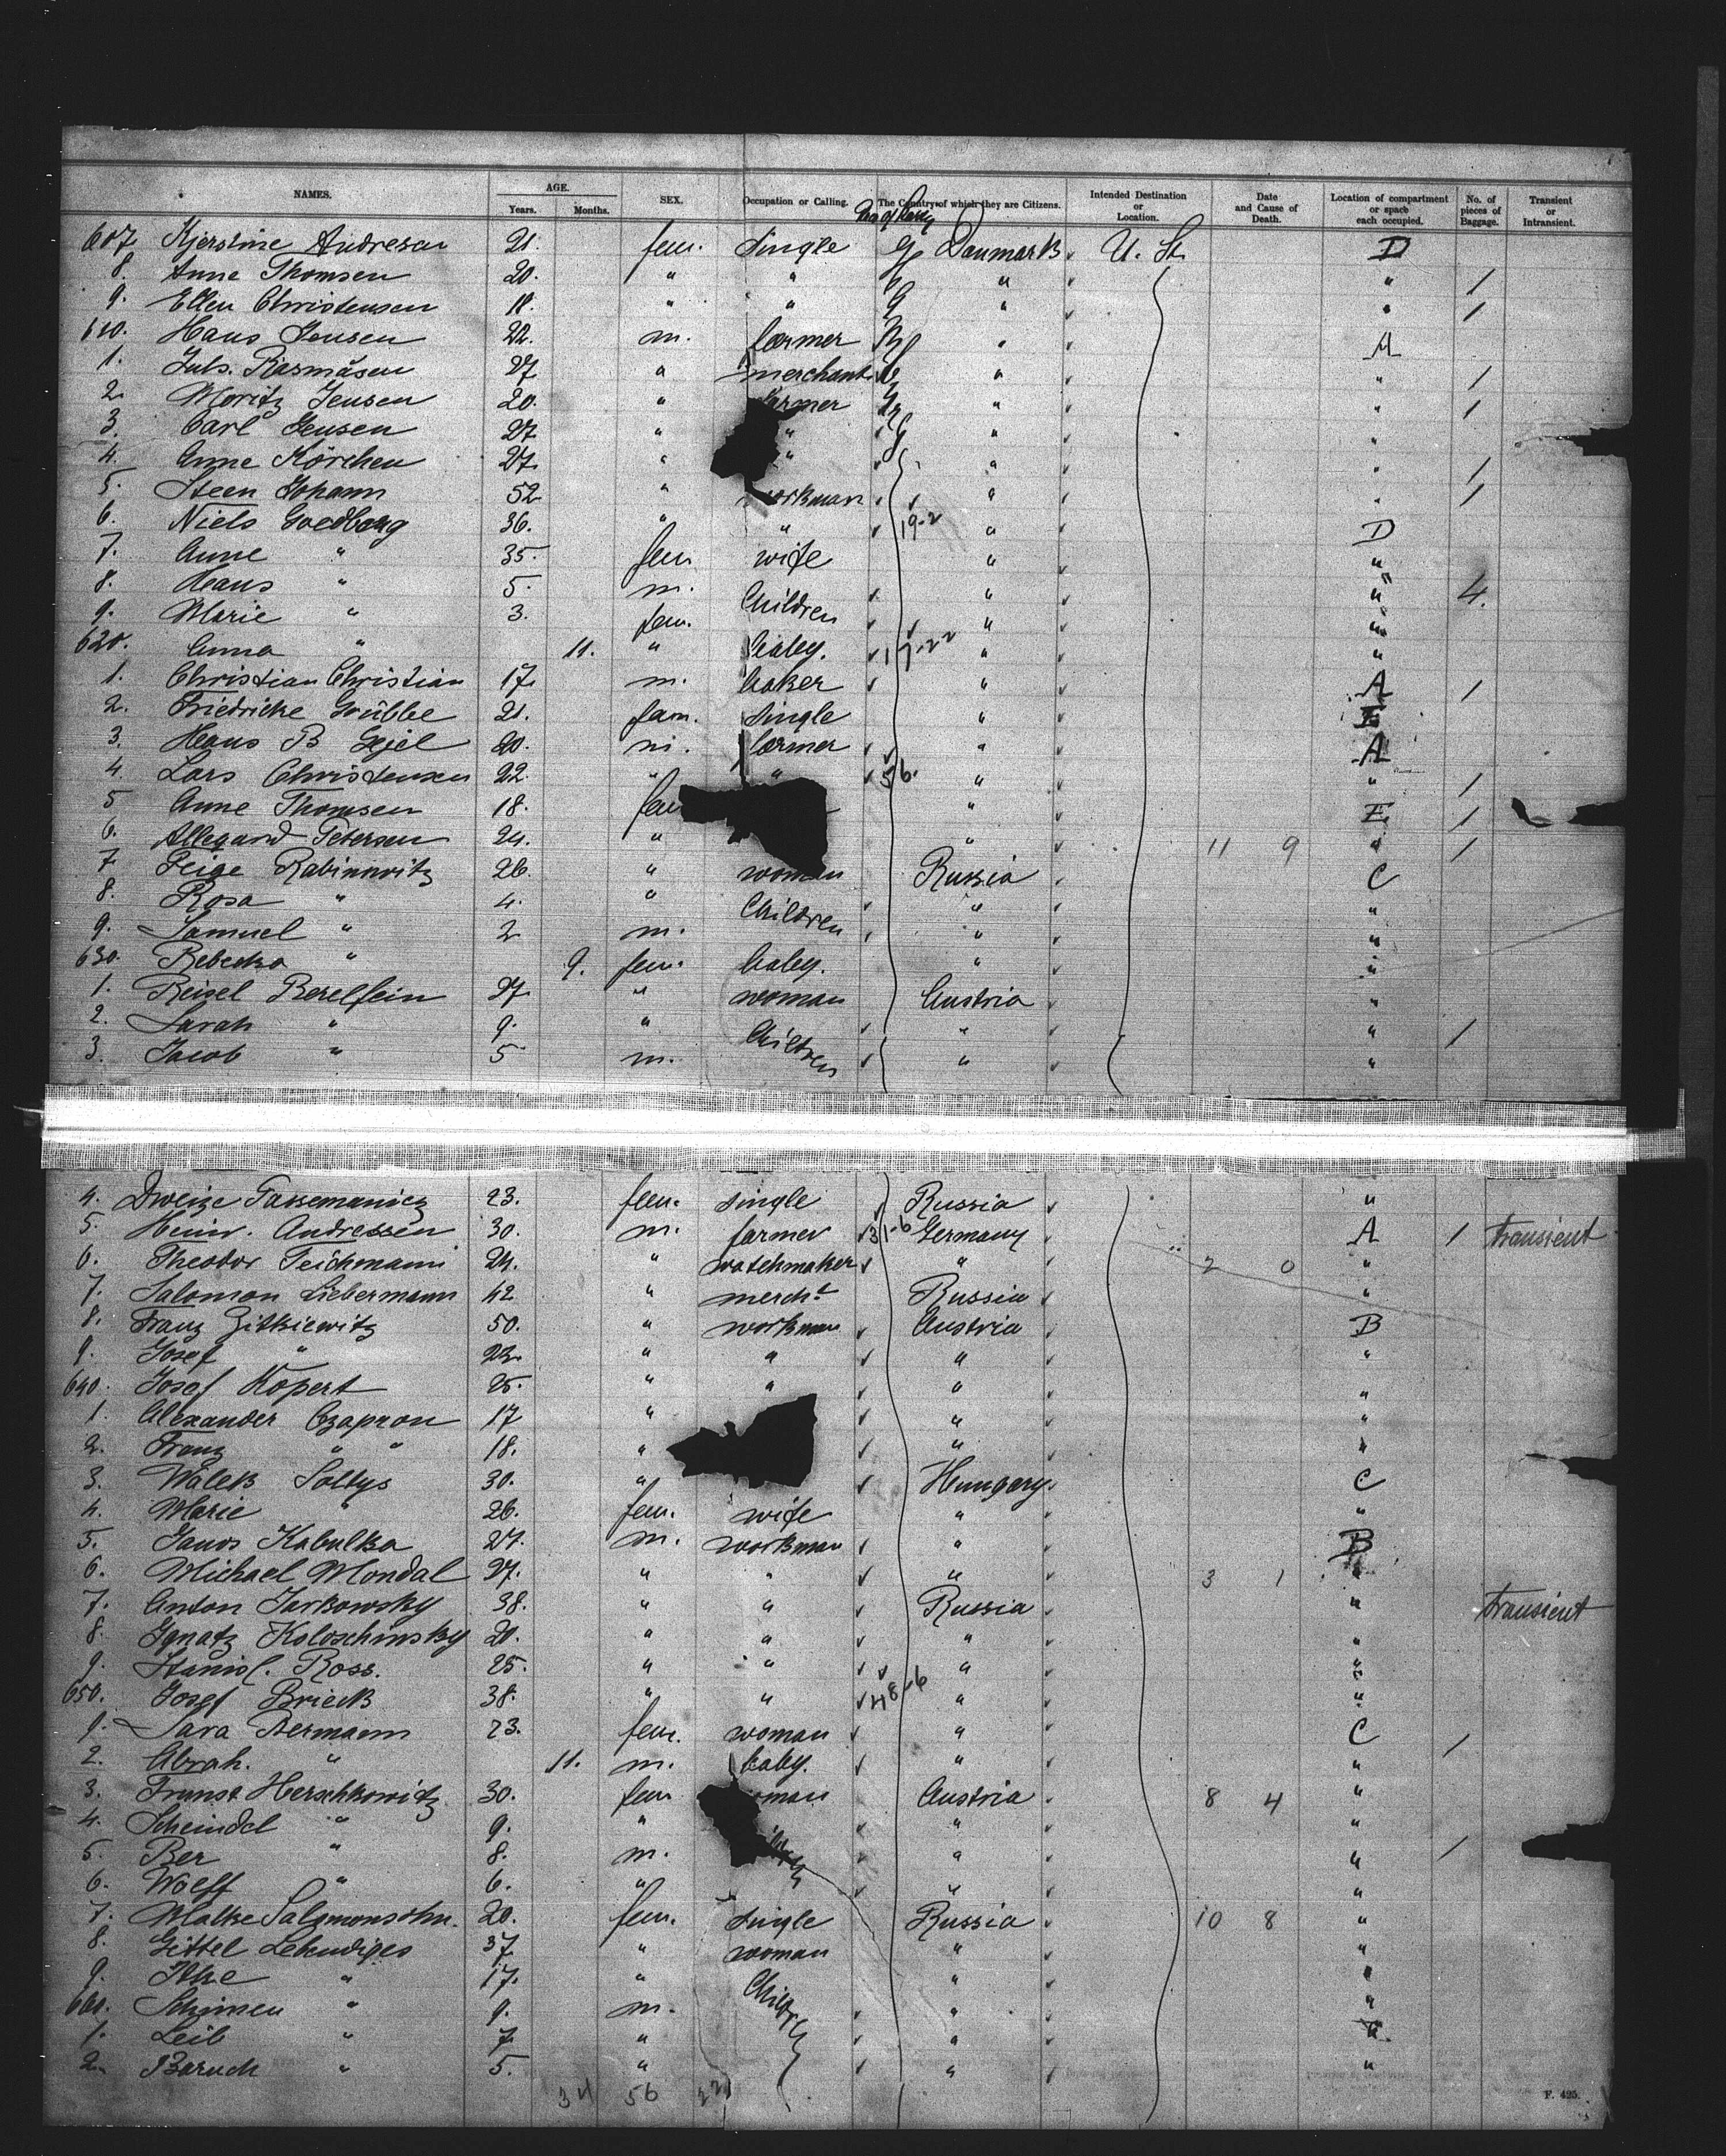 NAMES. AGE. Years. Months. SEX. Occupation or Calling. The Country of which they are Citizens. Intended Destination or Location. Date and Cause of Death. Location of compartment or space each occupied. No. of pieces of Baggage. Transient or Intransient.
607 Kjerstine Andresen 21. fem. single Danmark U. St. D
8. Anne Thomsen 20. " " " " 1
9. Ellen Christensen 18. " " " " 1
610. Hans Jensen 22. m. farmer " A
1. Juls. Rasmusen 27 " merchant " " 1
2. Moritz Jensen 20. " farmer " " 1
3. Carl Jensen 27 " " " "
4. Anne Körchen 27. " " " " 1
5. Steen Johann 52 " workman " " 1
6. Niels Goedberg 36. " " 19-2 " D
7. Anne " 35. fem wife " "
8. Hans " 5. m. Children " " 4.
9. Marie " 3. fem. " "
620. Anna " 11. " baby. " "
1. Christian Christian 17. m. baker " A 1
2. Friedricke Grübbe 21. fem. single " E
3. Hans B Gejel 20. m. farmer " A
4. Lars Christensen 22. " " " " 1
5 Anne Thomsen 18. fem " E 1
6. Allegard Petersen 24. " " 11 9 " 1
7 Feige Rabinowitz 26. " woman Russia C
8. Rosa " 4. " Children " "
9. Samuel " 2 m. " "
630. Rebecka " 9. fem. baby. " "
1. Reisel Berelfein 27. " woman Austria "
2. Sarah " 9. " Children " " 1
3. Jacob " 5 m. " "
4. Dweize Taksemanicz 23. fem. single Russia "
5. Heinr. Andressen 30. m. farmer 31-6 Germany A 1 transient
6. Theodor Teichmann 24. " watchmaker " 2 0 "
7. Salomon Liebermann 42 " mercht Russia "
8. Franz Zitkiewitz 50. " workman Austria B
9. Josef " 22. " " " "
640. Josef Kopert 25. " " " "
1. Alexander Czapron 17 " " "
2. Franz " " 18. " " "
3. Walek Soltys 30. " Hungary. C
4. Marie " 26. fem. wife " "
5. Janos Kabulka 27. m. workman " B
6. Michael Mondal 27. " " " 3 1 "
7. Anton Jarkowsky 38. " " Russia " transient
8. Ignatz Koloschinsky 20. " " " "
9. Stanisl. Ross. 25. " " " "
650. Josef Brieck 38. " " 48-6 " "
1. Sara Bermann 23. fem. woman " C 1
2. Abrah. " 11. m. baby. " "
3. Herschkowitz 30. fem woman Austria 8 4 "
4. Scheindel " 9. " " "
5. Ber " 8. m. " " 1
6. Wolff " 6. " " "
7. Malke Salamonsohn. 20. fem. single Russia 10 8 "
8. Gittel Lebendiges 37 " woman " "
9. Itke " 17. " Children " "
660. Schimen " 9. m. " "
1. Leib " 7 " " "
2. Baruch " 5. " " "
34 56 22
F. 425.